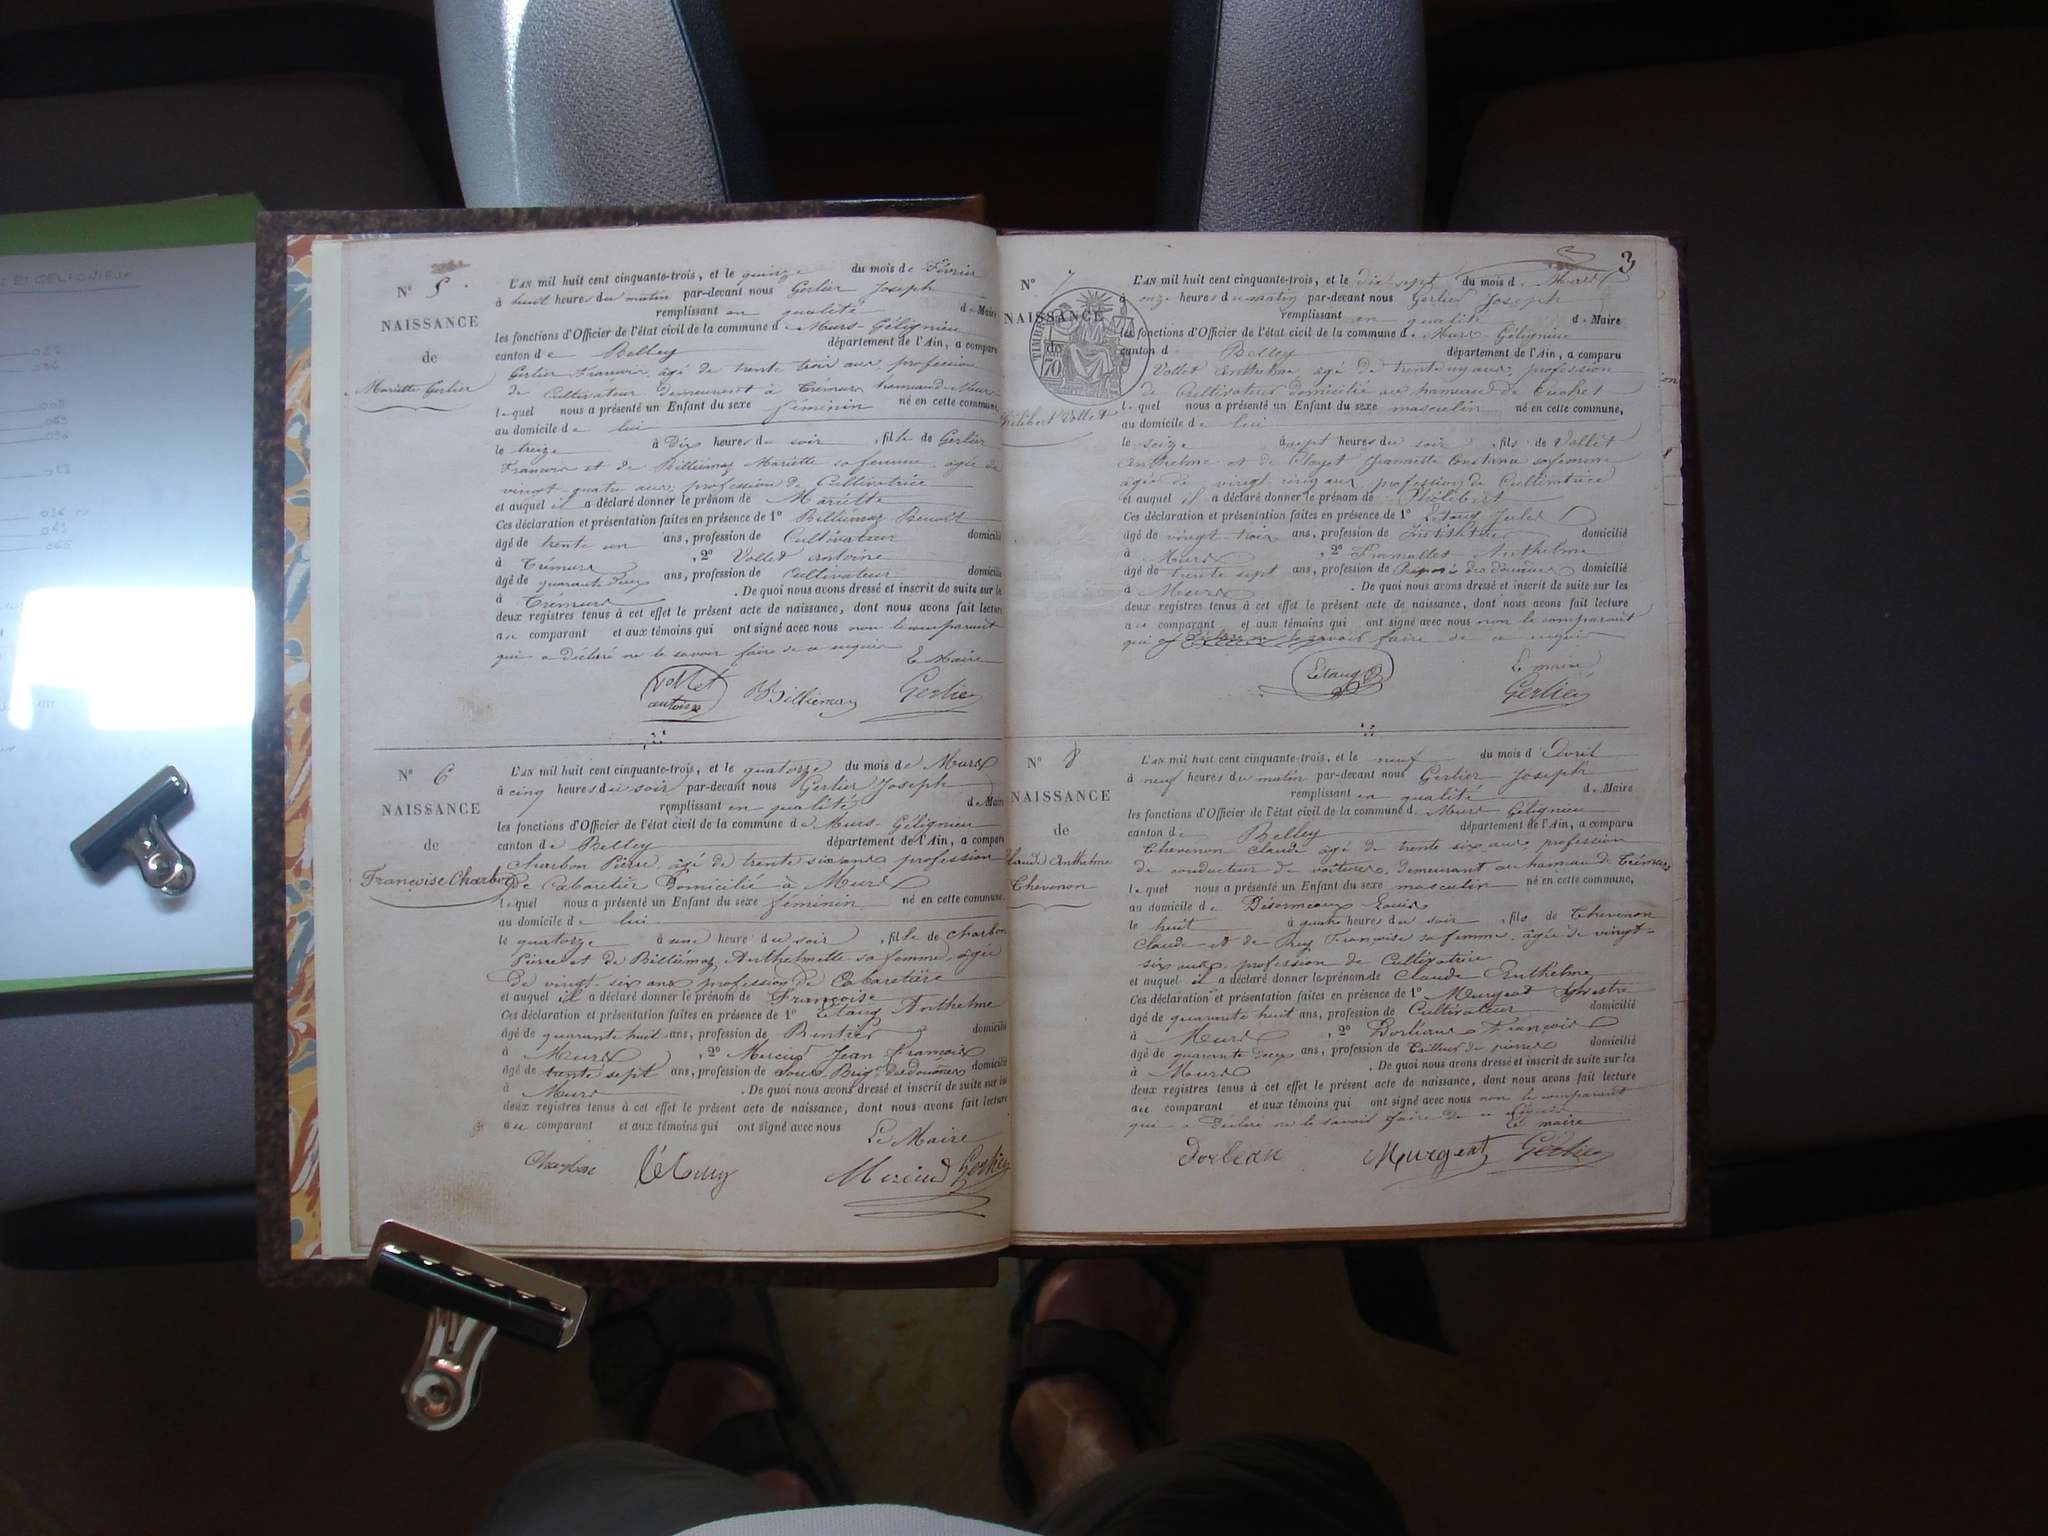 N° 5.
NAISSANCE
de
Mariette Gerlier
L'AN mil huit cent cinquante-trois, et le quinze du mois de Février
à huit heures du matin par-devant nous Gerlier Joseph
remplissant en qualité de Maire
les fonctions d'Officier de l'état civil de la commune de Murs-Gélignieu
canton de Belley département de l'Ain, a comparu
Gerlier François, âgé de trente trois ans, profession
de Cultivateur demeurant à Crémieu hameau de Murs
lequel nous a présenté un Enfant du sexe féminin né en cette commune,
au domicile de lui
le treize à Dix heures du soir, fille de Gerlier
François et de Billiémaz Mariette sa femme, âgée de
vingt-quatre ans, profession de Cultivatrice
et auquel il a déclaré donner le prénom de Mariette
Ces déclaration et présentation faites en présence de 1° Billiémaz Benoit
âgé de trente un ans, profession de Cultivateur domicilié
à , 2° Vollet Antoine
âgé de quarante deux ans, profession de Cultivateur domicilié
à . De quoi nous avons dressé et inscrit de suite sur les
deux registres tenus à cet effet le présent acte de naissance, dont nous avons fait lecture
au comparant et aux témoins qui ont signé avec nous non le comparant
qui a déclaré ne le savoir faire de ce enquis
Le Maire
Vollet antoine Billiemaz Gerlier
N° 6
NAISSANCE
de
Françoise Charbon
L'AN mil huit cent cinquante-trois, et le quatorze du mois de Mars
à cinq heures du soir par-devant nous Gerlier Joseph
remplissant en qualité de Maire
les fonctions d'Officier de l'état civil de la commune de Murs-Gélignieu
canton de Belley département de l'Ain, a comparu
Charbon Pierre, âgé de trente six ans profession
de Cabaretier Domicilié à Murs
lequel nous a présenté un Enfant du sexe féminin né en cette commune,
au domicile de lui
le quatorze à une heure du soir, fille de Charbon
Pierre et de Billiémaz Anthelmette sa femme, âgée
de vingt-six ans profession de Cabaretière
et auquel il a déclaré donner le prénom de Françoise
Ces déclaration et présentation faites en présence de 1° Létang Anthelme
âgé de quarante huit ans, profession de Rentier domicilié
à Murs, 2° Jean François
âgé de trente sept ans, profession de Sous-Brig. des douanes domicilié
à Murs. De quoi nous avons dressé et inscrit de suite sur les
deux registres tenus à cet effet le présent acte de naissance, dont nous avons fait lecture
au comparant et aux témoins qui ont signé avec nous
Le Maire
Charbon Létang Gerlier
3
N° 7
NAISSANCE
de
TIMBRE
70
Philibert Vollet
L'AN mil huit cent cinquante-trois, et le dix sept du mois de Mars
à onze heures du matin par-devant nous Gerlier Joseph
remplissant en qualité de Maire
les fonctions d'Officier de l'état civil de la commune de Murs-Gélignieu
canton de Belley département de l'Ain, a comparu
Vollet Anthelme âgé de trente un ans, profession
de Cultivateur domicilié au hameau de Cuchet
lequel nous a présenté un Enfant du sexe masculin né en cette commune,
au domicile de lui
le seize à sept heures du soir, fils de Vollet
Anthelme et de Jeannette sa femme
âgée de vingt cinq ans profession de Cultivatrice
et auquel il a déclaré donner le prénom de Philibert
Ces déclaration et présentation faites en présence de 1° Létang
âgé de vingt trois ans, profession de Instituteur domicilié
à Murs, 2° Anthelme
âgé de trente sept ans, profession de Préposé des douanes domicilié
à Murs. De quoi nous avons dressé et inscrit de suite sur les
deux registres tenus à cet effet le présent acte de naissance, dont nous avons fait lecture
au comparant et aux témoins qui ont signé avec nous non le comparant
qui a déclaré ne le savoir faire de ce enquis
Le maire
Létang Gerlier
N° 8
NAISSANCE
de
Claude Anthelme
Chevenon
L'AN mil huit cent cinquante-trois, et le neuf du mois d'Avril
à neuf heures du matin par-devant nous Gerlier Joseph
remplissant en qualité de Maire
les fonctions d'Officier de l'état civil de la commune de Murs Gélignieu
canton de Belley département de l'Ain, a comparu
Chevenon Claude âgé de trente six ans, profession
de conducteur de voitures, demeurant au hameau de
lequel nous a présenté un Enfant du sexe masculin né en cette commune,
au domicile de Désormeaux Louis
le huit à quatre heures du soir, fils de Chevenon
Claude et de Rey Françoise sa femme, âgée de vingt-
six ans, profession de Cultivatrice
et auquel il a déclaré donner le prénom de Claude Anthelme
Ces déclaration et présentation faites en présence de 1° Murgeat Sylvestre
âgé de quarante huit ans, profession de Cultivateur domicilié
à Murs, 2° François
âgé de quarante deux ans, profession de Tailleur de pierres domicilié
à Murs. De quoi nous avons dressé et inscrit de suite sur les
deux registres tenus à cet effet le présent acte de naissance, dont nous avons fait lecture
au comparant et aux témoins qui ont signé avec nous non le comparant
qui a déclaré ne le savoir faire de ce enquis
Le maire
Murgeat Gerlier